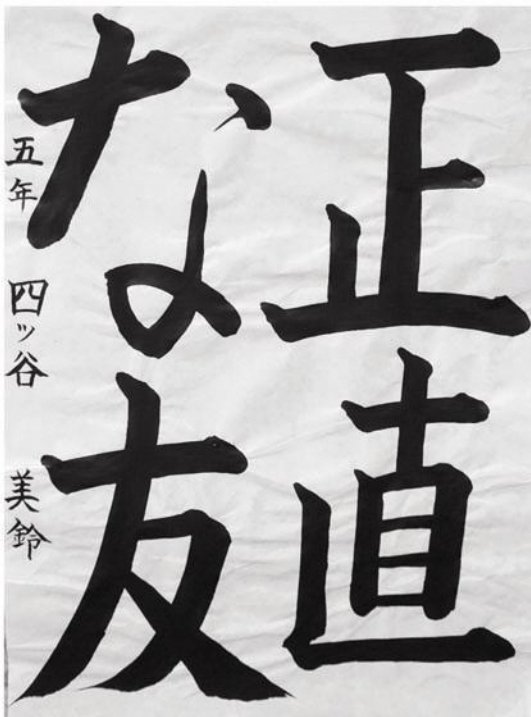 正直
な友
五年 四ッ谷 美鈴